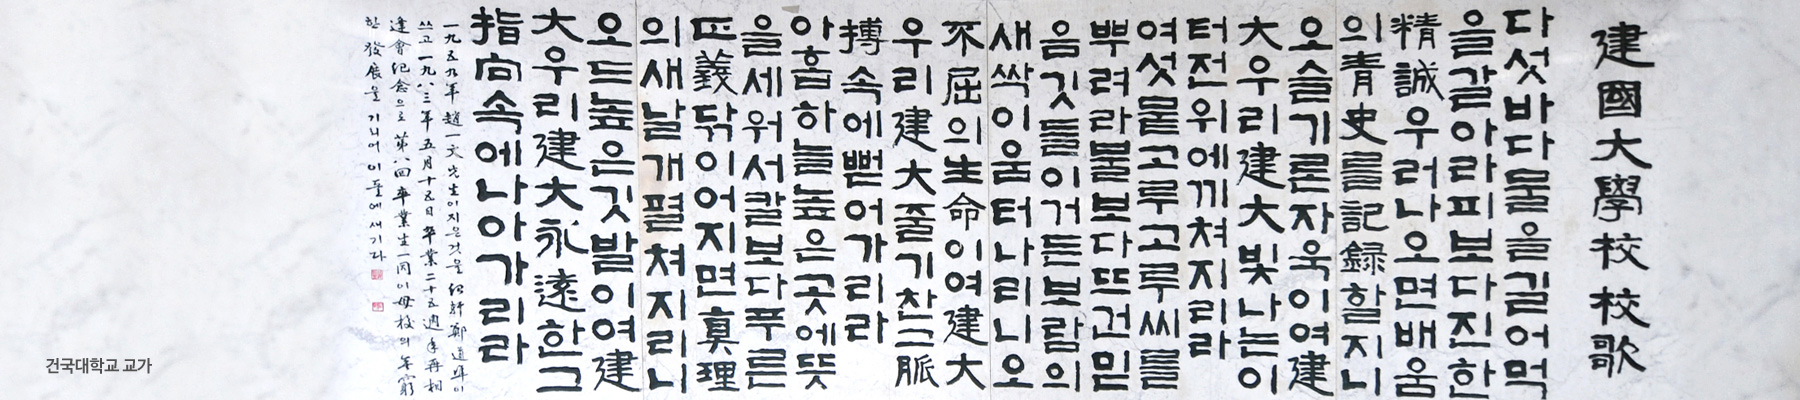 建國大學校校歌
다섯바다물을길어먹
을갈아라피보다진한
精誠우러나오면배움
의靑史를記録할지니
오슬기론자욱이여建
大우리建大빛나는이
터전위에끼쳐지리라
여섯뭍고루고루씨를
뿌려라불보다뜨건믿
음깃들이거든보람의
새싹이움터나리니오
不屈의生命이여建大
우리建大줄기찬그脈
搏속에뻗어가리라
아흡하늘높은곳에뜻
을세워서칼보다푸른
正義닦이어지면眞理
의새날개펼쳐지리니
오드높은깃발이여建
大우리建大永遠한그
指向속에나아가리라
一九五九年趙一文先生이지은것을
쓰고一九八三年五月十五日卒業二十五週年再相
逢會紀念으로第八回卒業生一同이母校의無窮
한發展을기리어이돌에새기다
건국대학교 교가